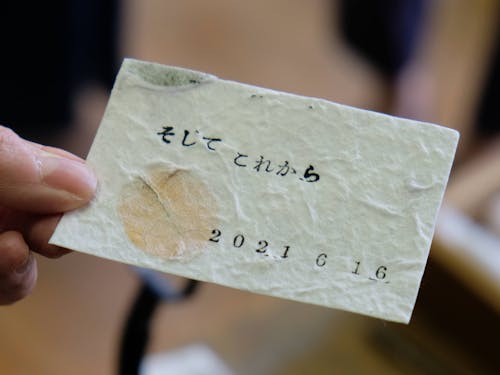 そして これから
2021 6 16